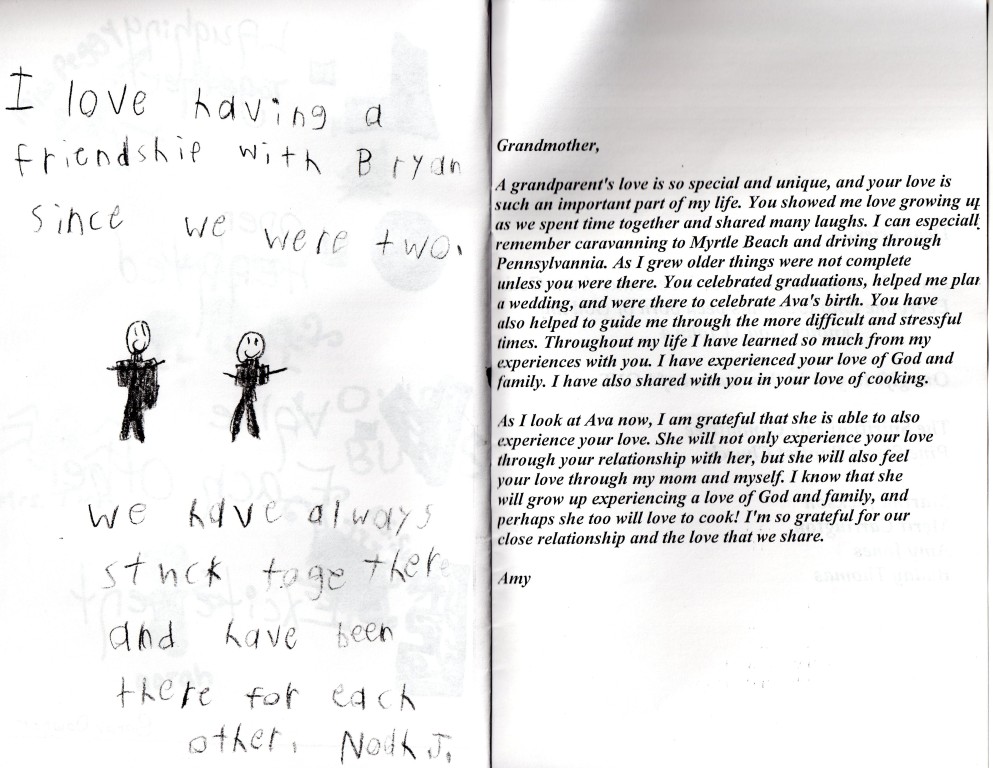 I love having a
friendship with Bryan
since we were two.
we have always
stuck togethere
and have been
there for each
other. Noah J.
Grandmother,
A grandparent's love is so special and unique, and your love is
such an important part of my life. You showed me love growing up
as we spent time together and shared many laughs. I can especiall
remember caravanning to Myrtle Beach and driving through
Pennsylvannia. As I grew older things were not complete
unless you were there. You celebrated graduations, helped me plan
a wedding, and were there to celebrate Ava's birth. You have
also helped to guide me through the more difficult and stressful
times. Throughout my life I have learned so much from my
experiences with you. I have experienced your love of God and
family. I have also shared with you in your love of cooking.
As I look at Ava now, I am grateful that she is able to also
experience your love. She will not only experience your love
through your relationship with her, but she will also feel
your love through my mom and myself. I know that she
will grow up experiencing a love of God and family, and
perhaps she too will love to cook! I'm so grateful for our
close relationship and the love that we share.
Amy